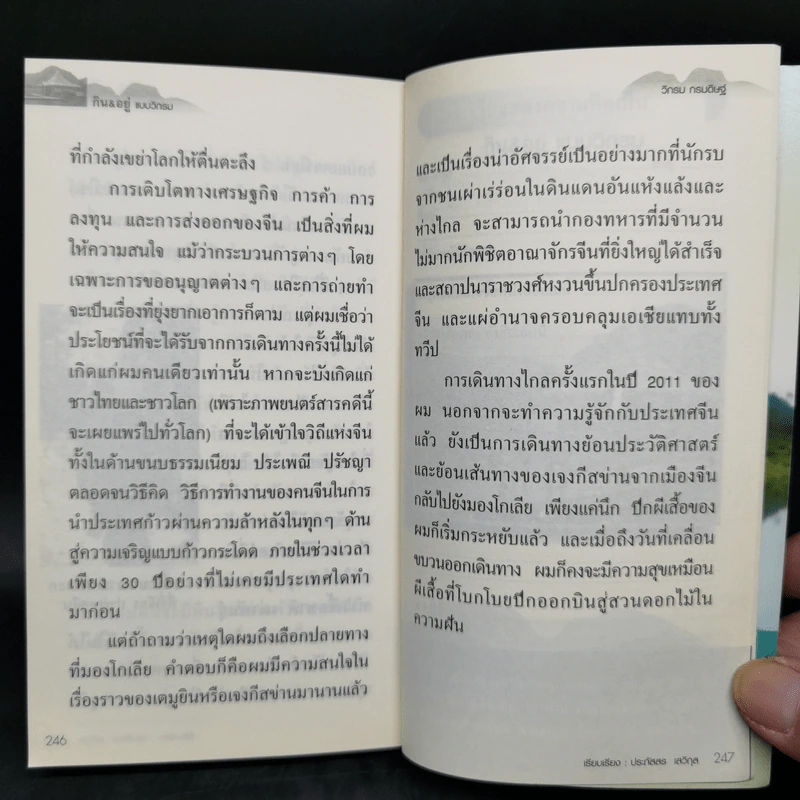 กิน&อยู่ แบบวิกรม
ที่กำลังเขย่าโลกให้ตื่นตะลึง
การเติบโตทางเศรษฐกิจ การค้า การ
ลงทุน และการส่งออกของจีน เป็นสิ่งที่ผม
ให้ความสนใจ แม้ว่ากระบวนการต่างๆ โดย
เฉพาะการขออนุญาตต่างๆ และการถ่ายทำ
จะเป็นเรื่องที่ยุ่งยากเอาการก็ตาม แต่ผมเชื่อว่า
ประโยชน์ที่จะได้รับจากการเดินทางครั้งนี้ไม่ได้
เกิดแก่ผมคนเดียวเท่านั้น หากจะบังเกิดแก่
ชาวไทยและชาวโลก (เพราะภาพยนตร์สารคดีนี้
จะเผยแพร่ไปทั่วโลก) ที่จะได้เข้าใจวิถีแห่งจีน
ทั้งในด้านขนบธรรมเนียม ประเพณี ปรัชญา
ตลอดจนวิธีคิด วิธีการทำงานของคนจีนในการ
นำประเทศก้าวผ่านความล้าหลังในทุกๆ ด้าน
สู่ความเจริญแบบก้าวกระโดด ภายในช่วงเวลา
เพียง 30 ปีอย่างที่ไม่เคยมีประเทศใดทำ
มาก่อน
แต่ถ้าถามว่าเหตุใดผมถึงเลือกปลายทาง
ที่มองโกเลีย คำตอบก็คือผมมีความสนใจใน
เรื่องราวของเตมูยินหรือเจงกีสข่านมานานแล้ว
246
วิกรม กรมดิษฐ์
และเป็นเรื่องน่าอัศจรรย์เป็นอย่างมากที่นักรบ
จากชนเผ่าเร่ร่อนในดินแดนอันแห้งแล้งและ
ห่างไกล จะสามารถนำกองทหารที่มีจำนวน
ไม่มากนักพิชิตอาณาจักรจีนที่ยิ่งใหญ่ได้สำเร็จ
และสถาปนาราชวงศ์หงวนขึ้นปกครองประเทศ
จีน และแผ่อำนาจครอบคลุมเอเชียแทบทั้ง
ทวีป
การเดินทางไกลครั้งแรกในปี 2011 ของ
ผม นอกจากจะทำความรู้จักกับประเทศจีน
แล้ว ยังเป็นการเดินทางย้อนประวัติศาสตร์
และย้อนเส้นทางของเจงกีสข่านจากเมืองจีน
กลับไปยังมองโกเลีย เพียงแค่นึก ปีกผีเสื้อของ
ผมก็เริ่มกระหยับแล้ว และเมื่อถึงวันที่เคลื่อน
ขบวนออกเดินทาง ผมก็คงจะมีความสุขเหมือน
ผีเสื้อที่โบกโบยปีกออกบินสู่สวนดอกไม้ใน
ความฝัน
เรียบเรียง : ประภัสสร เสวิกุล 247